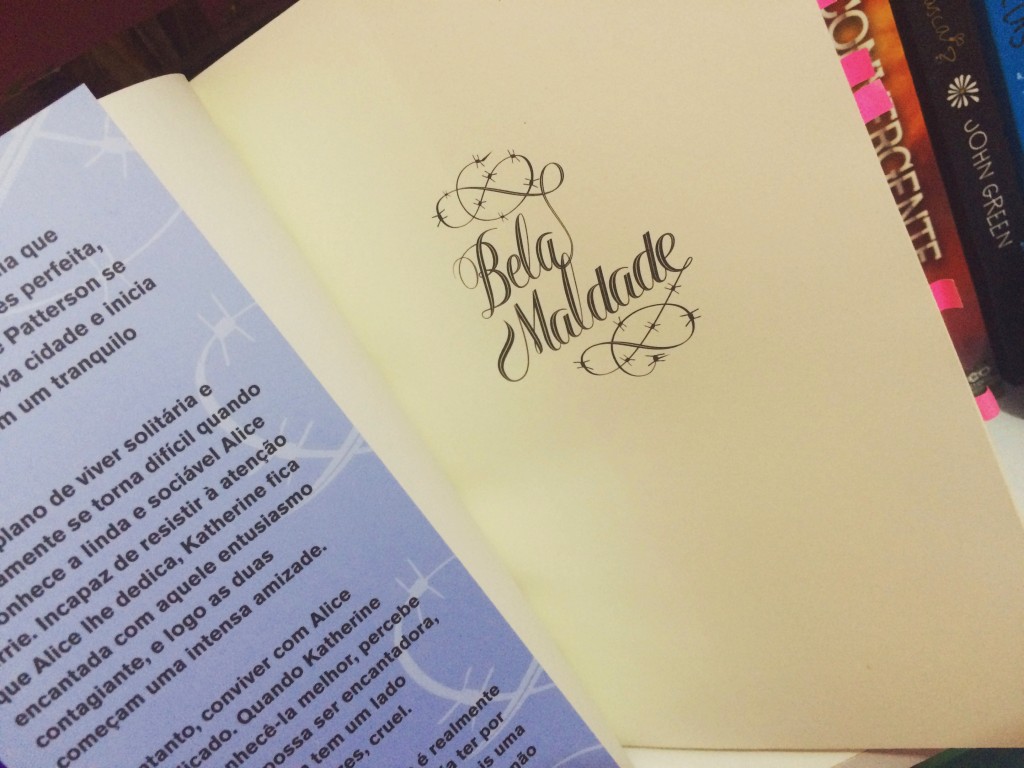 que
es perfeita,
Patterson se
va cidade e inicia
m um tranquilo
plano de viver solitária e
amente se torna difícil quando
onhece a linda e sociável Alice
rrie. Incapaz de resistir à atenção
que Alice lhe dedica, Katherine fica
encantada com aquele entusiasmo
contagiante, e logo as duas
começam uma intensa amizade.
ntanto, conviver com Alice
icado. Quando Katherine
nhecê-la melhor, percebe
possa ser encantadora,
tem um lado
res, cruel.
é realmente
a ter por
is uma
não
Bela
Maldade
CONVERGENTE
JOHN GREEN